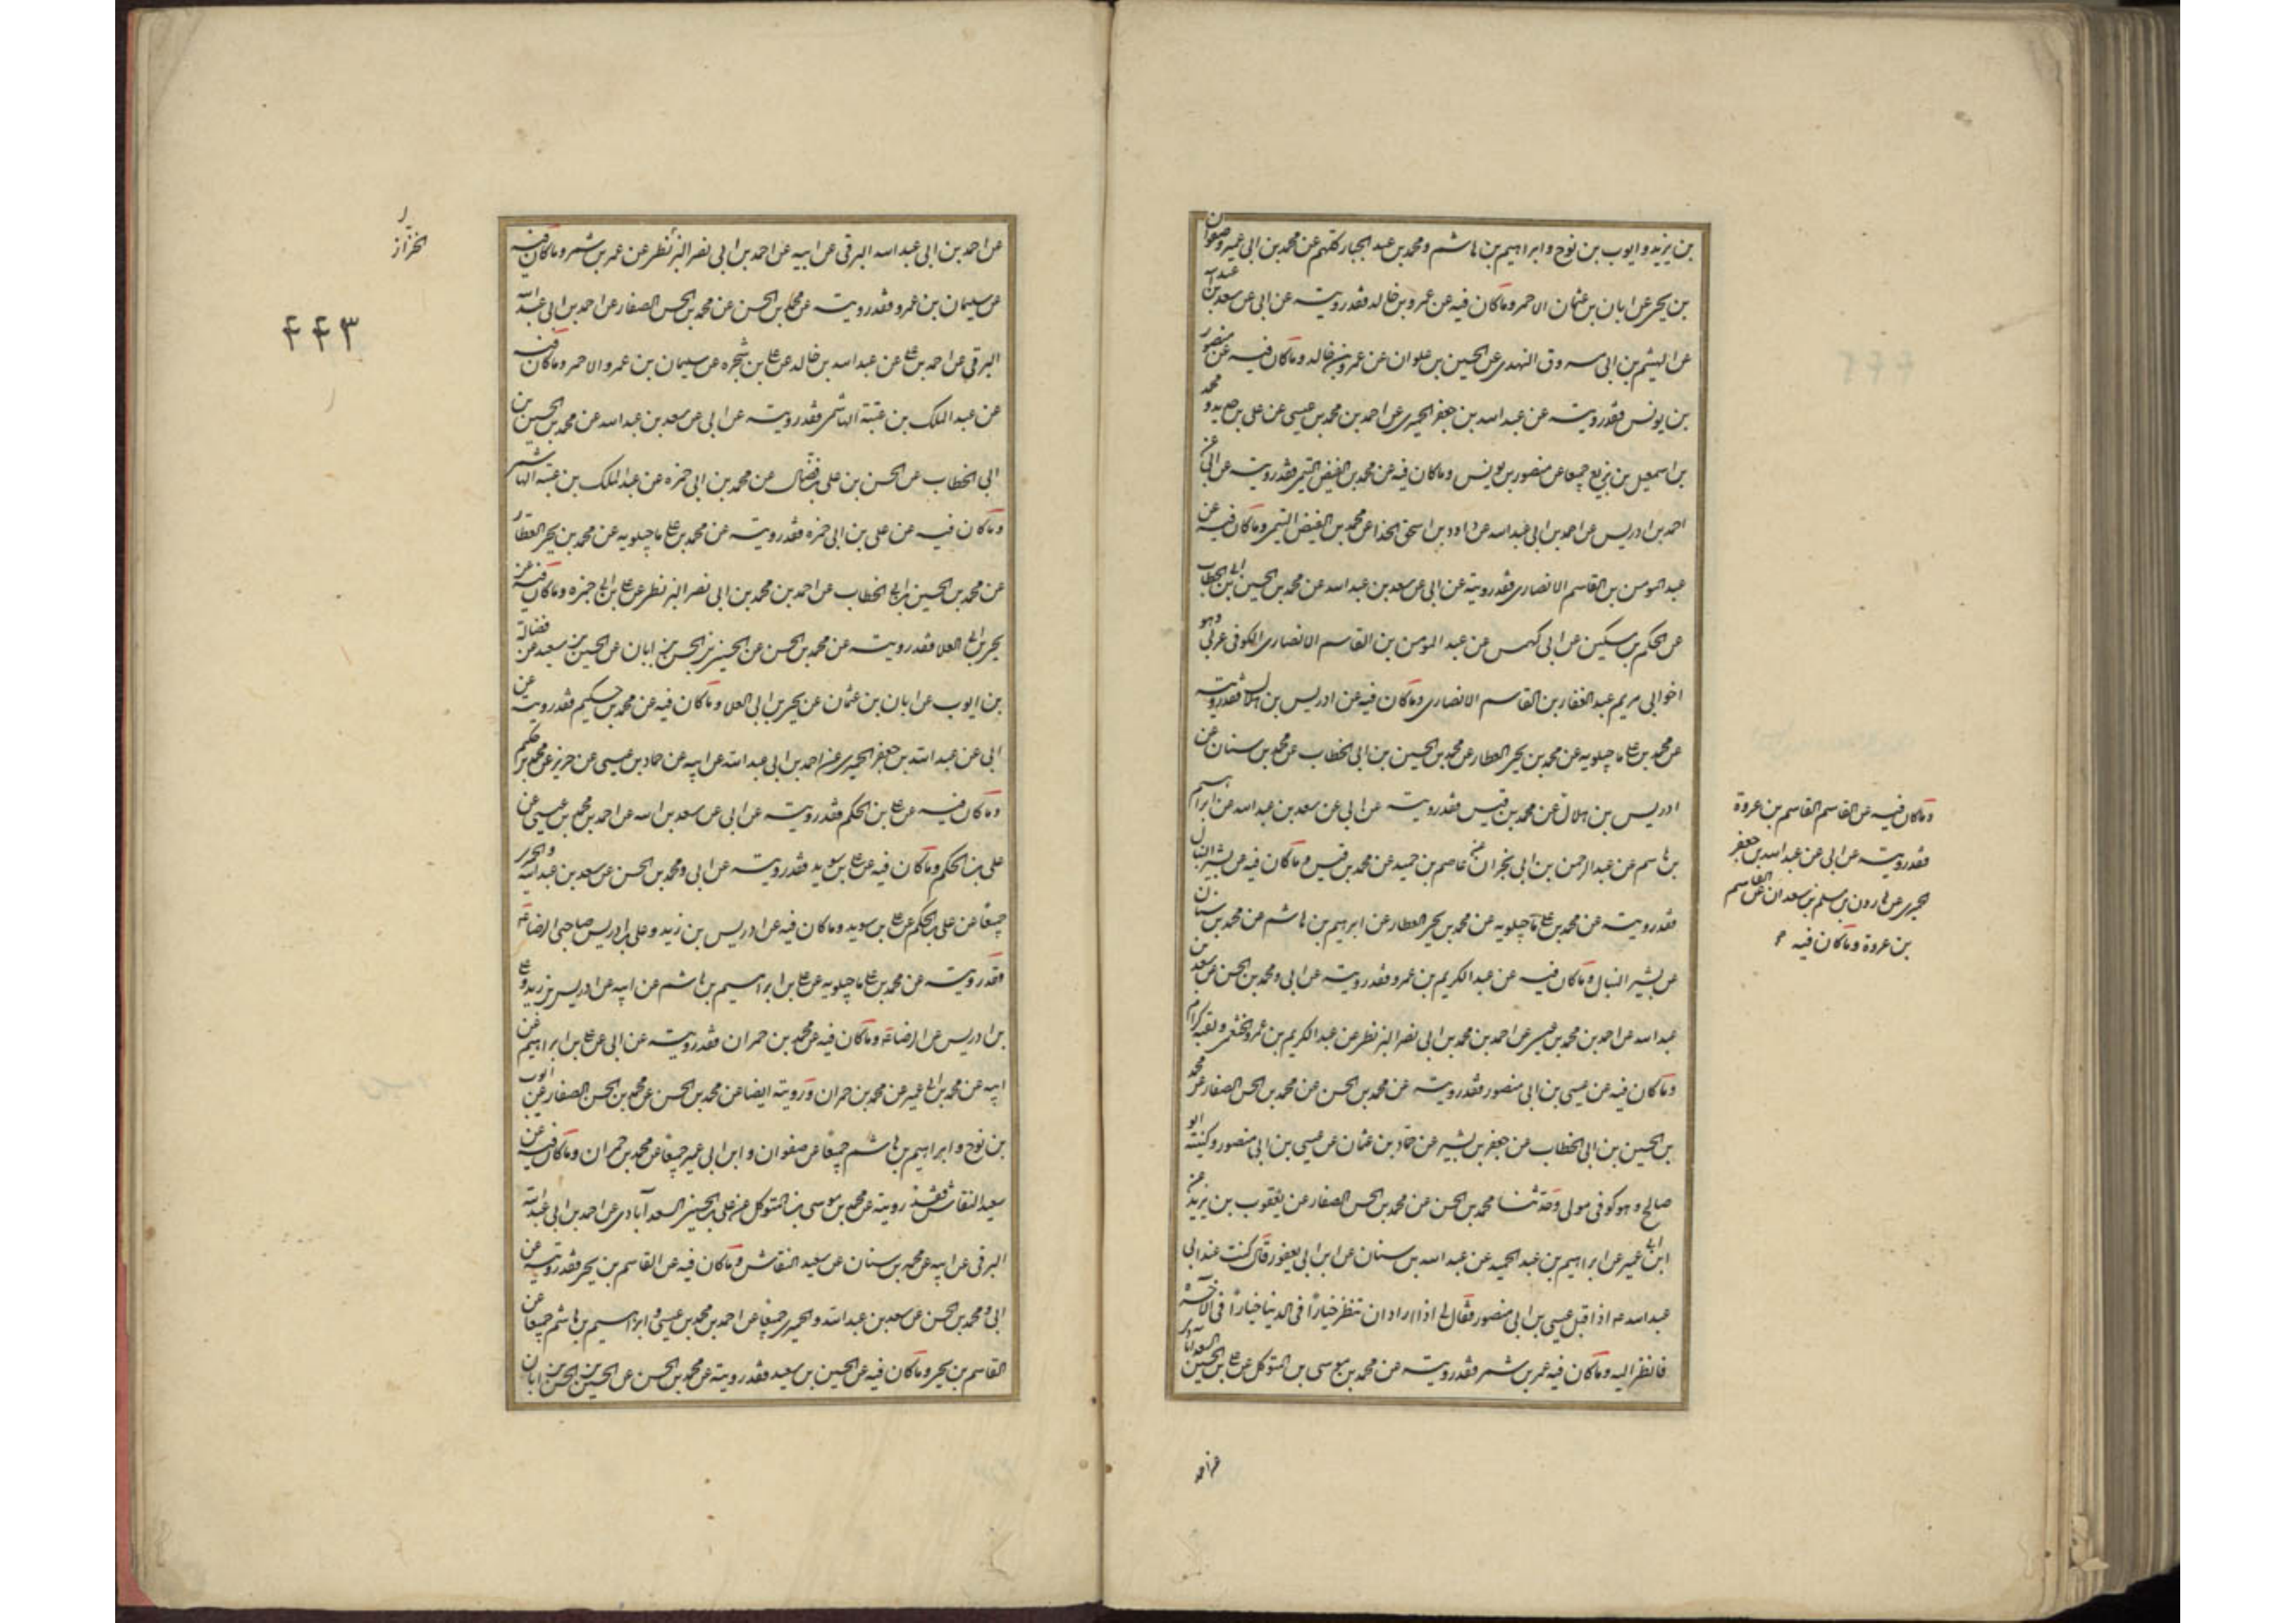 بن يزيد و ايوب بن نوح و ابراهيم بن هاشم و محمد بن عبد الجبار كلهم عن محمد بن ابى عمير و صفوان
بن يحيى عن ابان بن عثمان الاحمر و ما كان فيه عن عمرو بن خالد فقد رويته عن ابى عن سعد بن عبد الله
عن الهيثم بن ابى مسروق النهدى عن الحسين بن علوان عن عمرو بن خالد و ما كان فيه عن منصور
بن يونس فقد رويته عن عبد الله بن جعفر الحميرى عن احمد بن محمد بن عيسى عن على بن حديد و محمد
بن اسمعيل بن بزيع جميعا عن منصور بن يونس و ما كان فيه عن محمد بن الفيض التيمى فقد رويته عن ابى عن
احمد بن ادريس عن احمد بن ابى عبد الله عن داود بن اسحق الحذا عن محمد بن الفيض التيمى و ما كان فيه عن
عبد المومن بن القاسم الانصارى فقد رويته عن ابى عن سعد بن عبد الله عن محمد بن الحسين بن ابى الخطاب
عن الحكم بن مسكين عن ابى كهمس عن عبد المومن بن القاسم الانصارى الكوفى عربى و هو
اخو ابى مريم عبد الغفار بن القاسم الانصارى و ما كان فيه عن ادريس بن هلال فقد رويته
عن محمد بن على ماجيلويه عن محمد بن يحيى العطار عن محمد بن الحسين بن ابى الخطاب عن محمد بن سنان عن
ادريس بن هلال عن محمد بن قيس فقد رويته عن ابى عن سعد بن عبد الله عن ابراهيم
بن هاشم عن عبد الرحمن بن ابى نجران عن عاصم بن حميد عن محمد بن قيس و ما كان فيه عن بشير النبال
فقد رويته عن محمد بن على ماجيلويه عن محمد بن يحيى العطار عن ابرهيم بن هاشم عن محمد بن سنان
عن بشير النبال و ما كان فيه عن عبد الكريم بن عمرو فقد رويته عن ابى و محمد بن الحسن عن سعد بن
عبد الله عن احمد بن محمد بن عيسى عن احمد بن محمد بن ابى نصر البزنطى عن عبد الكريم بن عمرو الخثعمى و لقبه كرام
و ما كان فيه عن عيسى بن ابى منصور فقد رويته عن محمد بن الحسن عن محمد بن الحسن الصفار عن محمد
بن الحسين بن ابى الخطاب عن جعفر بن بشير عن حماد بن عثمان عن عيسى بن ابى منصور و كنيته ابو
صالح و هو كوفى مولى و حدثنا محمد بن الحسن عن محمد بن الحسن الصفار عن يعقوب بن يزيد عن
ابن ابى عمير عن ابراهيم بن عبد الحميد عن عبد الله بن سنان عن ابن ابى يعفور قال كنت عند ابى
عبد الله ع اذ اقبل عيسى بن ابى منصور فقال لى اذا اراد ان تنظر خيارا فى الدنيا خيارا فى الآخرة
فانظر اليه و ما كان فيه عمر بن شمر فقد رويته عن محمد بن موسى بن المتوكل عن على بن الحسين السعدآبادى
و ما كان فيه عن القاسم القاسم بن عروة
فقد رويته عن ابى عن عبد الله بن جعفر
الحميرى عن هارون بن مسلم بن سعدان عن القاسم
بن عروة و ما كان فيه
عن احمد
عن احمد بن ابى عبد الله البرقى عن ابيه عن احمد بن ابى نصر البزنطى عن عمر بن شمر و ما كان فيه
عن سليمان بن عمرو فقد رويته عن محمد بن الحسن عن محمد بن الحسن الصفار عن احمد بن ابى عبد الله
البرقى عن احمد بن على عن عبد الله بن خالد عن على بن شجره عن سليمان بن عمرو الاحمر و ما كان فيه
عن عبد الملك بن عتبة الهاشمى فقد رويته عن ابى عن سعد بن عبد الله عن محمد بن الحسين بن
ابى الخطاب عن الحسن بن على بن فضال عن محمد بن ابى حمزه عن عبد الملك بن عتبه الهاشمى
و ما كان فيه عن على بن ابى حمزه فقد رويته عن محمد بن على ماجيلويه عن محمد بن يحيى العطار
عن محمد بن الحسين بن ابى الخطاب عن احمد بن محمد بن ابى نصر البزنطى عن على بن ابى حمزه و ما كان فيه عن
يحيى بن ابى العلا فقد رويته عن محمد بن الحسن عن الحسين بن الحسن بن ابان عن الحسين بن سعيد عن فضالة
بن ايوب عن ابان بن عثمان عن يحيى بن ابى العلا و ما كان فيه عن محمد بن حكيم فقد رويته عن
ابى عن عبد الله بن جعفر الحميرى عن احمد بن ابى عبد الله عن ابيه عن حماد بن عيسى عن حريز عن محمد بن حكيم
و ما كان فيه عن على بن الحكم فقد رويته عن ابى عن سعد بن الله عن احمد بن محمد بن عيسى عن
على بن الحكم و ما كان فيه عن على بن سويد فقد رويته عن ابى و محمد بن الحسن عن سعد بن عبد الله و الحميرى
جميعا عن على بن الحكم عن على بن سويد و ما كان فيه عن ادريس بن زيد و على بن ادريس صاحبى الرضا ع
فقد رويته عن محمد بن على ماجيلويه عن على بن ابراهيم بن هاشم عن ابيه عن ادريس بن زيد و على
بن ادريس عن الرضا ع و ما كان فيه عن محمد بن حمران فقد رويته عن ابى عن على بن ابراهيم عن
ابيه عن محمد بن ابى عمير عن محمد بن حمران و رويته ايضا عن محمد بن الحسن عن محمد بن الحسن الصفار عن ايوب
بن نوح و ابراهيم بن هاشم جميعا عن صفوان و ابن ابى عمير جميعا عن محمد بن حمران و ما كان فيه عن
سعيد النقاش فقد رويته عن محمد بن موسى بن المتوكل عن على بن الحسين السعدآبادى عن احمد بن ابى عبد الله
البرقى عن ابيه عن محمد بن سنان عن سعيد النقاش و ما كان فيه عن القاسم بن يحيى فقد رويته عن
ابى و محمد بن الحسن عن سعد بن عبد الله و الحميرى جميعا عن احمد بن محمد بن عيسى و ابراهيم بن هاشم جميعا عن
القاسم بن يحيى و ما كان فيه عن الحسين بن سعيد فقد رويته عن محمد بن الحسن عن الحسين بن الحسن بن ابان
الخزاز
۴۴۳